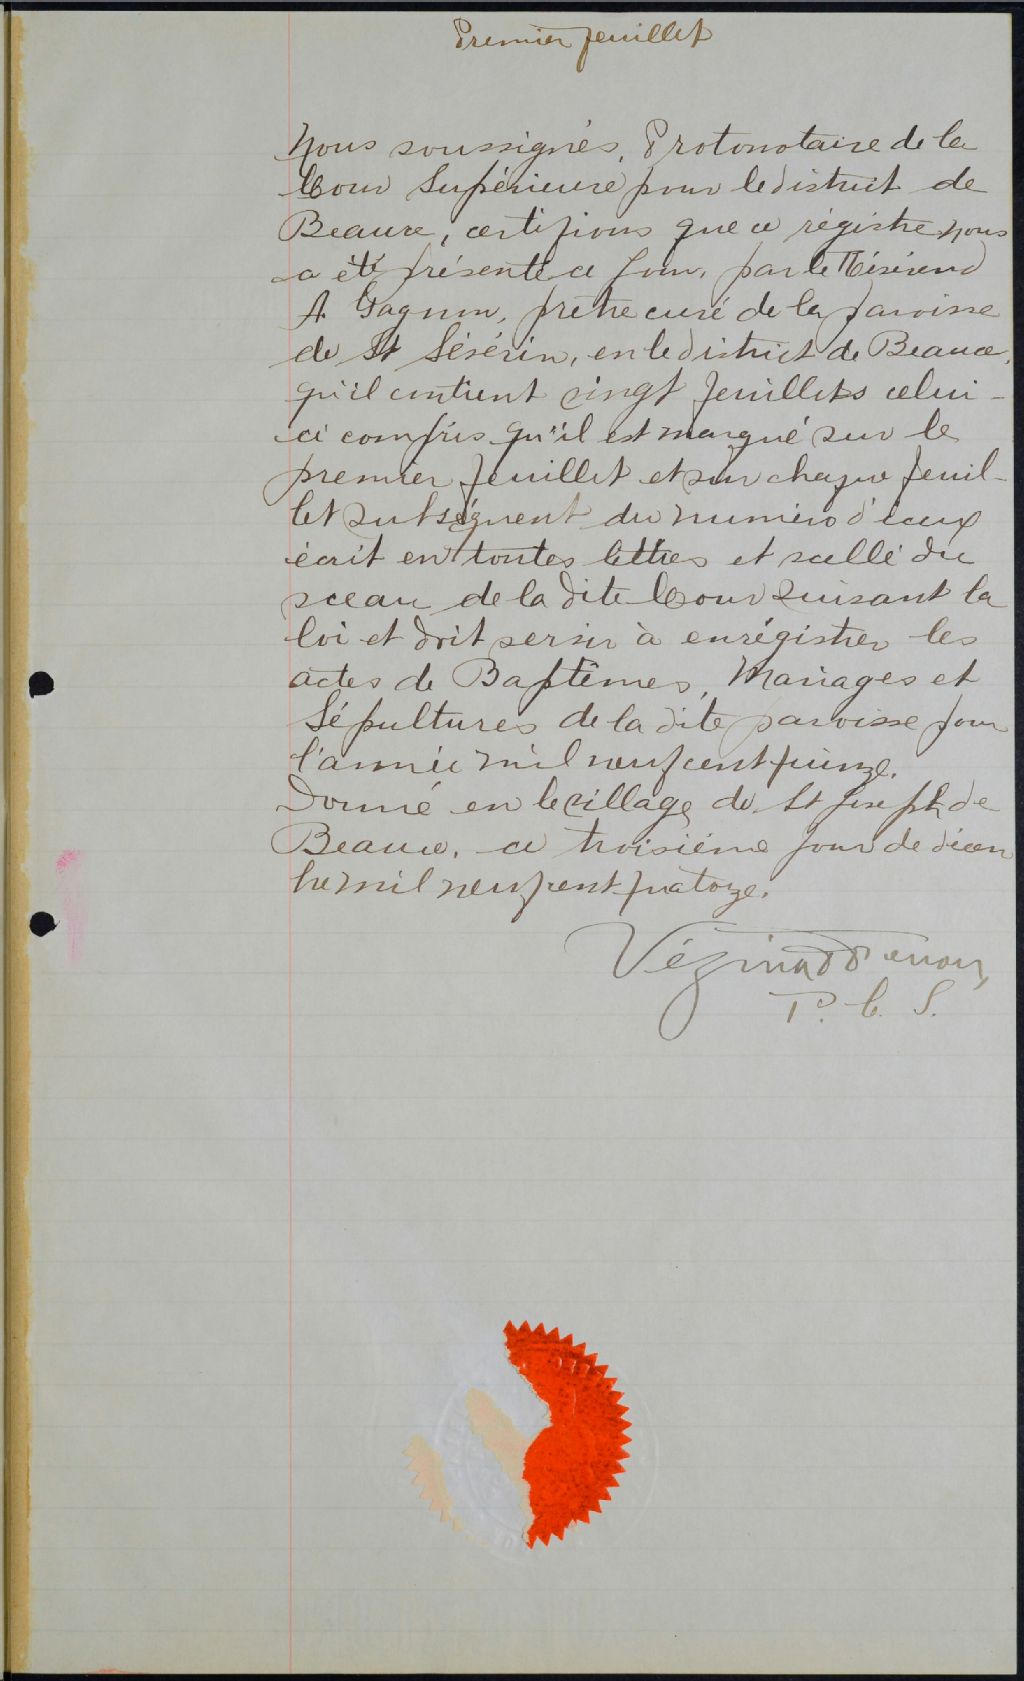 Premier feuillet
Nous soussignés, Protonotaire de la
Cour Supérieure pour le district de
Beauce, certifions que ce régistre nous
a été présenté ce jour, par le Révérend
A. Gagnon, prêtre curé de la paroisse
de St Sévérin, en le district de Beauce,
qu'il contient vingt feuillets celui-
ci compris qu'il est marqué sur le
premier feuillet et sur chaque feuil-
let subséquent du numéro d'iceux
écrit en toutes lettres et scellé du
sceau de la dite Cour suivant la
loi et doit servir à enrégistrer les
actes de Baptêmes, Mariages et
Sépultures de la dite paroisse pour
l'année mil neuf cent quinze.
Donné en le village de St Joseph de
Beauce, ce troisième jour de décem
bre mil neuf cent quatorze.
Vézina
P. C. S.